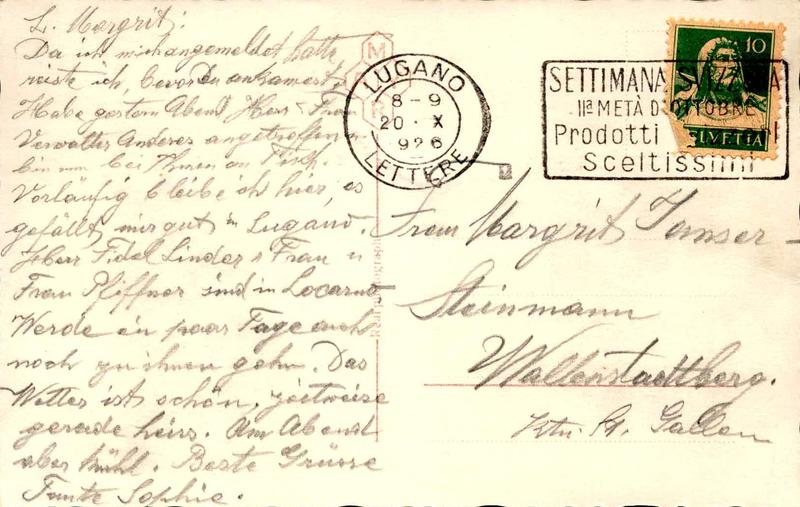 L. Margrit!
Da ich mich angemeldet hatte
reiste ich, bevor Du ankamest.
Habe gestern Abend Herr & Frau
Verwalter Anderes angetroffen u
bin nun bei Ihnen am Tisch.
Vorläufig bleibe ich hier, es
gefällt mir gut in Lugano.
Herr Fidel Linder & Frau u
Frau Pfiffner sind in Locarno
Werde ein paar Tage auch
noch zu ihnen gehn. Das
Wetter ist schön, zeitweise
gerade heiss. Am Abend
aber kühl. Beste Grüsse
Tante Sophie.
LUGANO
8-9
20. X
926
LETTERE
SETTIMANA
IIª METÀ D'OTTOBRE
Prodotti
Sceltissimi
10
HELVETIA
Frau Margrit Janser-
Steinmann
Wallenstadtberg.
Ktn. St. Gallen